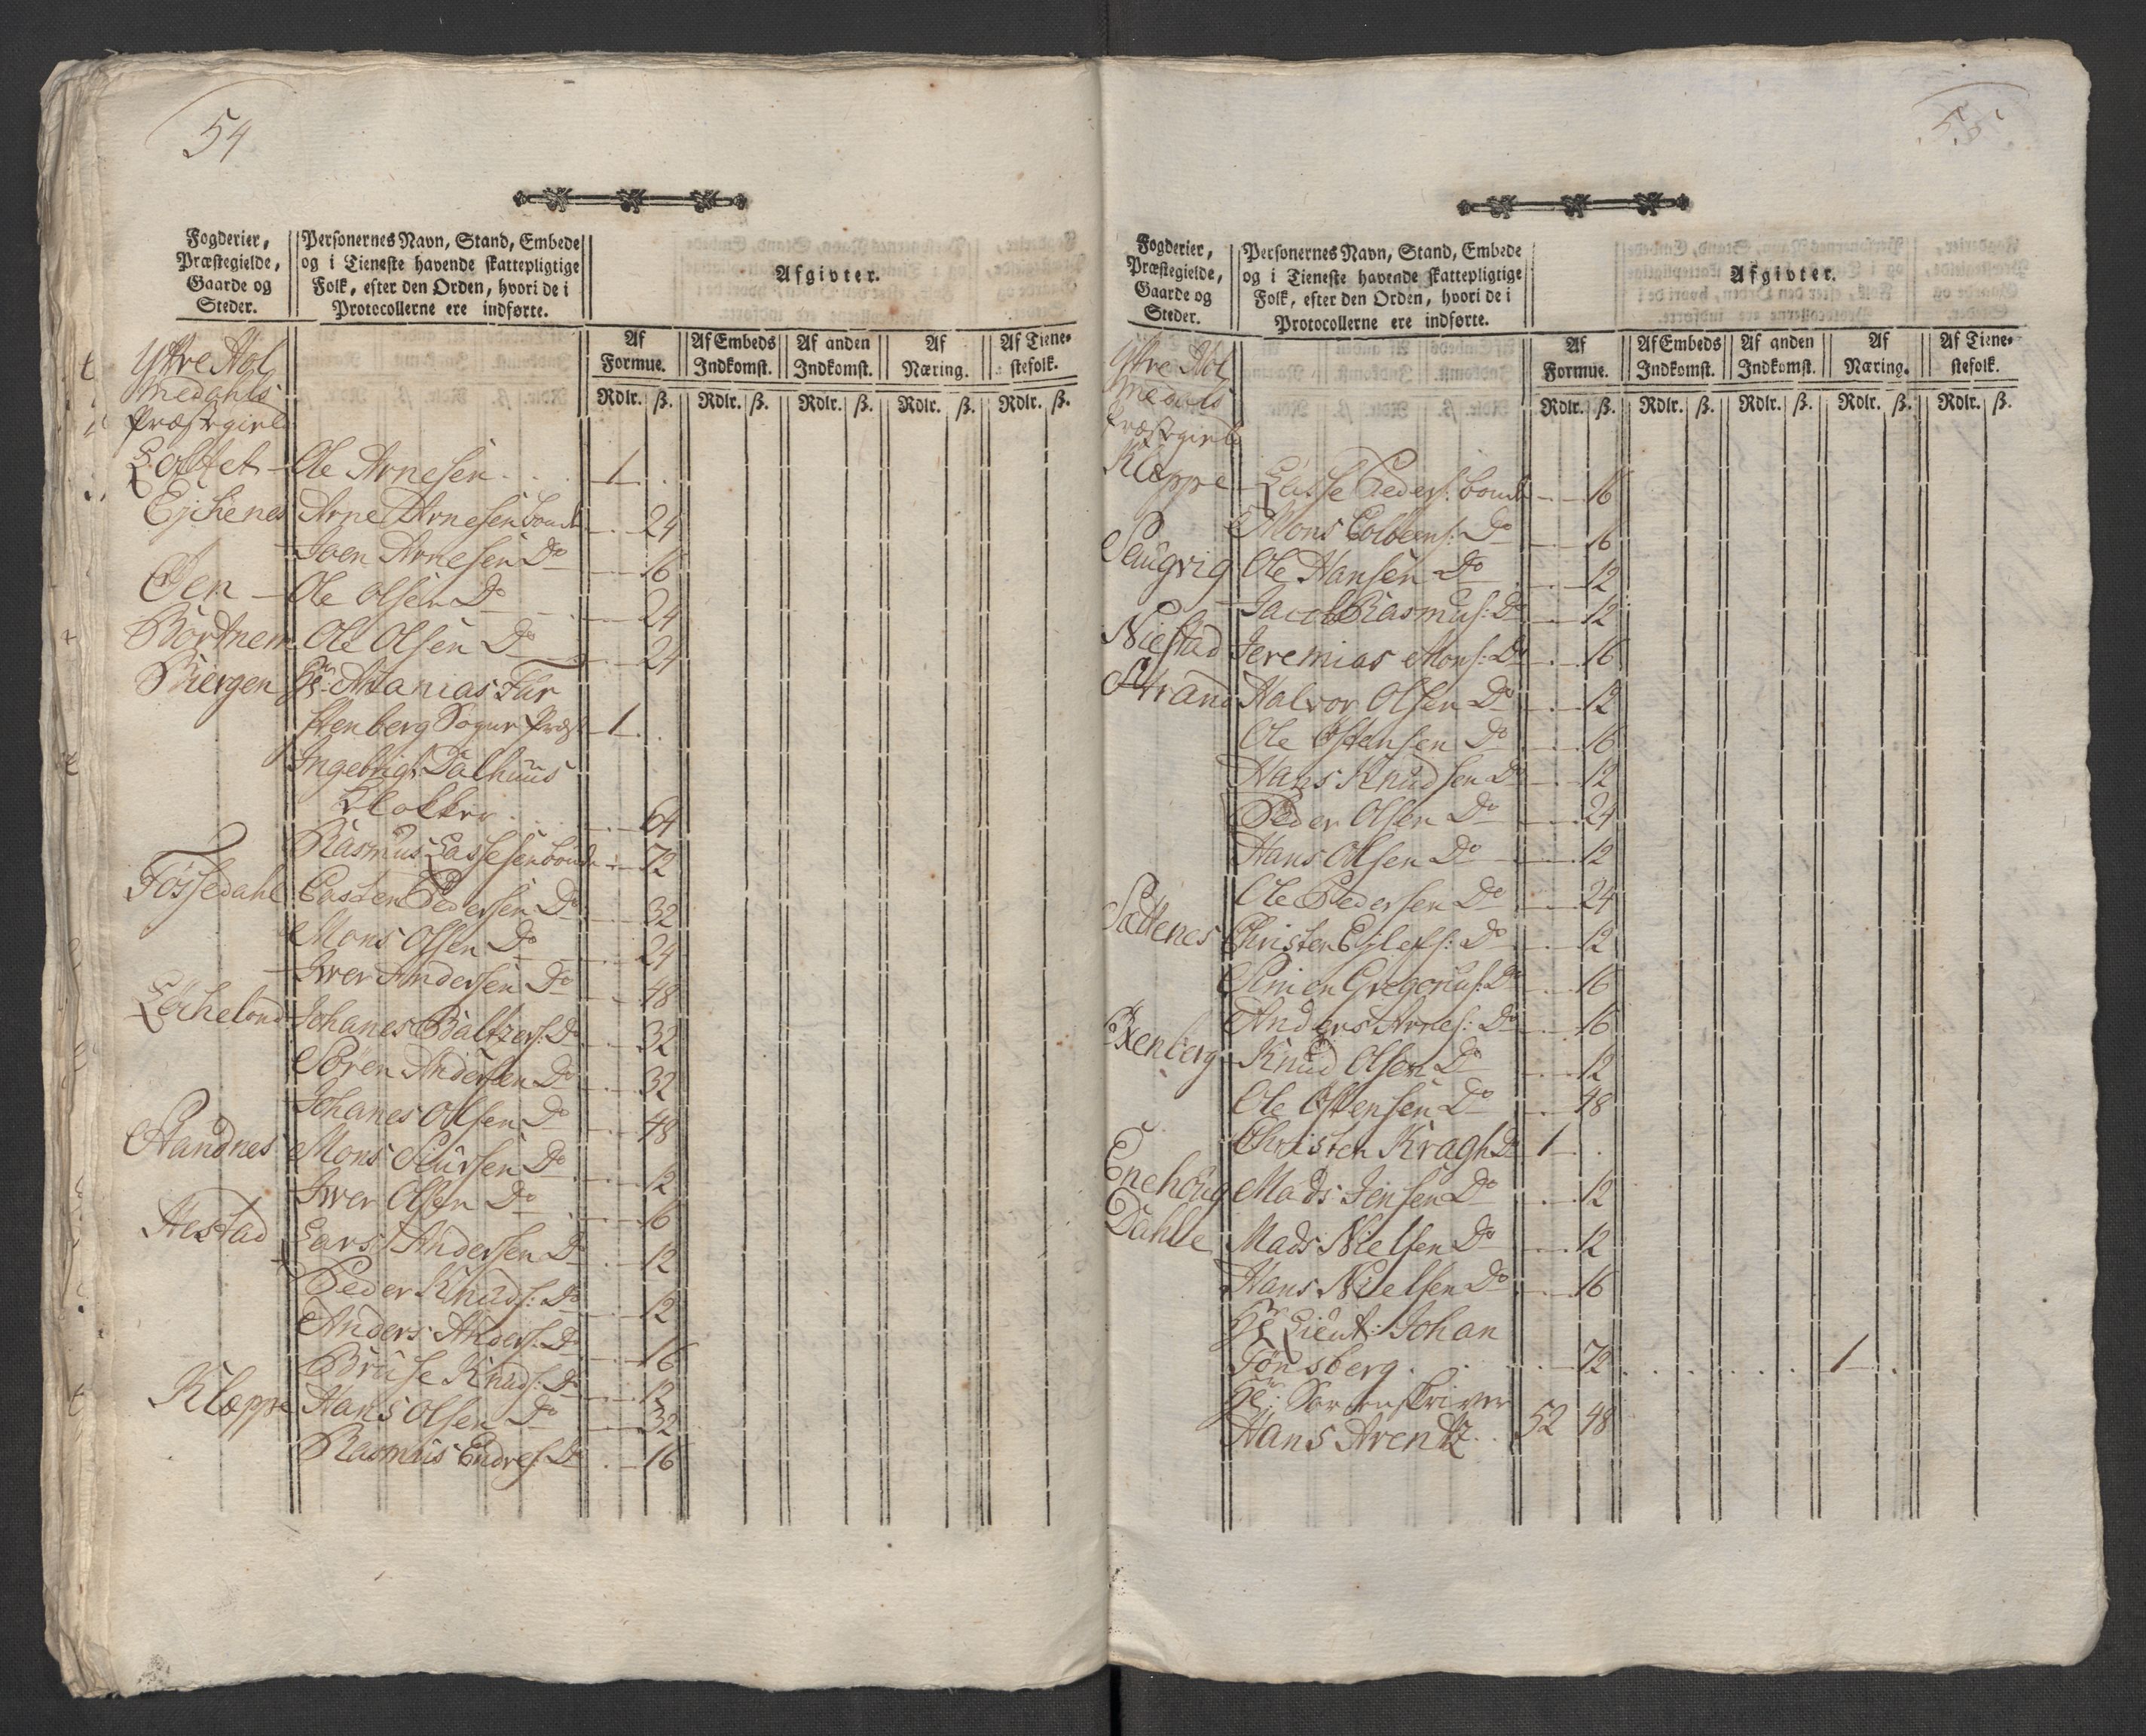 54
Fogderier,
Præstegielde,
Gaarde og
Steder.
Personernes Navn, Stand, Embede
og i Tieneste havende skattepligtige
Folk, efter den Orden, hvori de i
Protocollerne ere indførte.
Afgivter.
Af Formue. Af Embeds Indkomst. Af anden Indkomst. Af Næring. Af Tienestefolk.
Rdlr. ß. Rdlr. ß. Rdlr. ß. Rdlr. ß. Rdlr. ß.
Yttre Hol
medahls
Præstegield
Loftet Ole Arnesen 1
Ejchenes Arne Arnesen bonde 24
Joen Arnesen Do 16
Øen Ole Olsen Do 24
Børtnem Ole Olsen Do 24
Biergen Hr. Ananias Für
stenberg Sogne Præst 1
Ingebrigt Dalhuus
Klokker 64
Rasmus Lassesen bonde 72
Fossedahl Casten Pedersen Do 32
Mons Olsen Do 24
Iver Andersen Do 48
Leicheland Johanes Baltzers: Do 32
Søren Andersen Do 32
Johanes Olsen Do 48
Standnes Mons Siursen Do 12
Iver Olsen Do 16
Hestad Lars Andersen Do 12
Peder Knuds: Do 12
Anders Anders: Do 16
Bruse Knuds: Do 12
Kleppe Hans Olsen Do 32
Rasmus Endres: Do 16
55
Fogderier,
Præstegielde,
Gaarde og
Steder.
Personernes Navn, Stand, Embede
og i Tieneste havende skattepligtige
Folk, efter den Orden, hvori de i
Protocollerne ere indførte.
Afgivter.
Af Formue. Af Embeds Indkomst. Af anden Indkomst. Af Næring. Af Tienestefolk.
Rdlr. ß. Rdlr. ß. Rdlr. ß. Rdlr. ß. Rdlr. ß.
Yttre Hol
medals
Præstegield
Kleppe Lasse Peders: bonde 16
Mons Colbens: Do 16
Saugvig Ole Hansen Do 12
Jacob Rasmus: Do 12
Niestad Jeremias Mons: Do 16
Strand Halvor Olsen Do 12
Ole Østensen Do 16
Hans Knudsen Do 12
Peder Olsen Do 24
Hans Olsen Do 12
Ole Pedersen Do 24
Sættenes Christen Ejlefs: Do 12
Simen Gregorius: Do 16
Anders Arnes: Do 16
Øxenberg Knud Olsen Do 12
Ole Østensen Do 48
Christen Kragh Do 1
Enehoug Mads Jensen Do 12
Dahle Mads Nielsen Do 12
Hans Nielsen Do 16
Hr. Lieut: Johan
Tønsberg 72 1
Hr. Sorenskriver
Hans Arentz 52 48